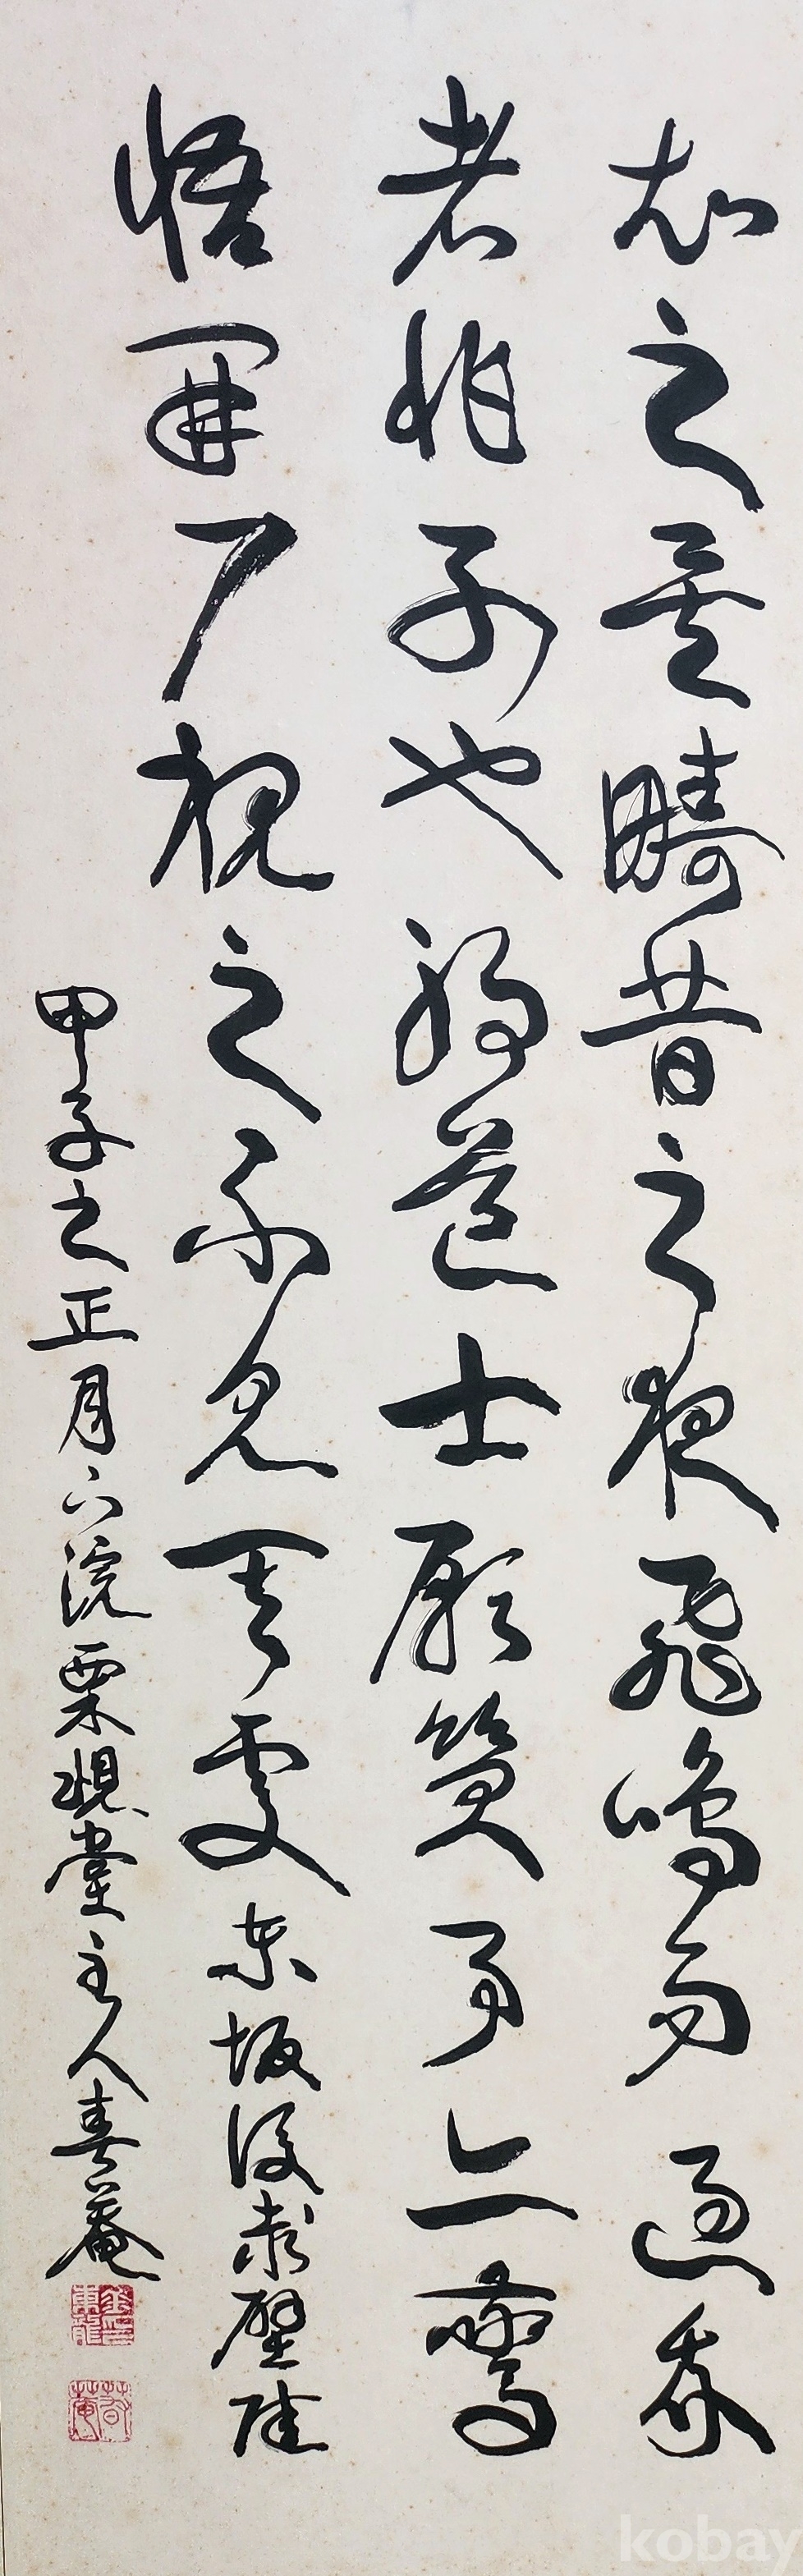 知之矣疇昔之夜飛鳴而過我
者非子也耶道士顧笑予亦驚
悟開戶視之不見其處東坡後赤壁賦
甲子之正月下浣栗峴堂主人春菴
kobay